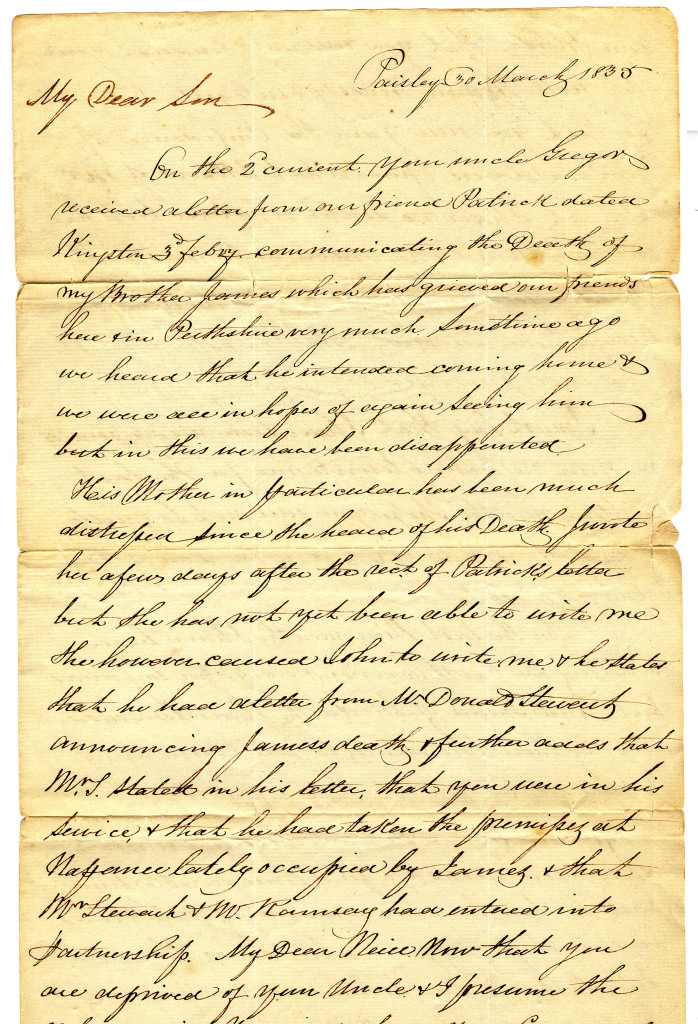 Paisley 30 March 1835
My Dear Son
On the 2d current your uncle Gregor
received a letter from our friend Patrick dated
Kingston 3d Febry communicating the Death of
my Brother James which has grieved our friends
here & in Perthshire very much Sometime ago
we heard that he intended coming home &
we were all in hopes of again seeing him
but in this we have been disappointed
His Mother in particular has been much
distressed since she heard of his Death I wrote
her a few days after the rect. of Patricks letter
but she has not yet been able to write me
She however caused John to write me & he states
that he had a letter from Mr Donald Stewart
announcing Jamess death & further adds that
Mr. S. stated in his letter, that you were in his
service, & that he had taken the premises at
Nappanee lately occupied by James. & that
Mr Stewart & Mr. Ramsay had entered into
partnership. My Dear Neice Now that you
are deprived of your Uncle & I presume the